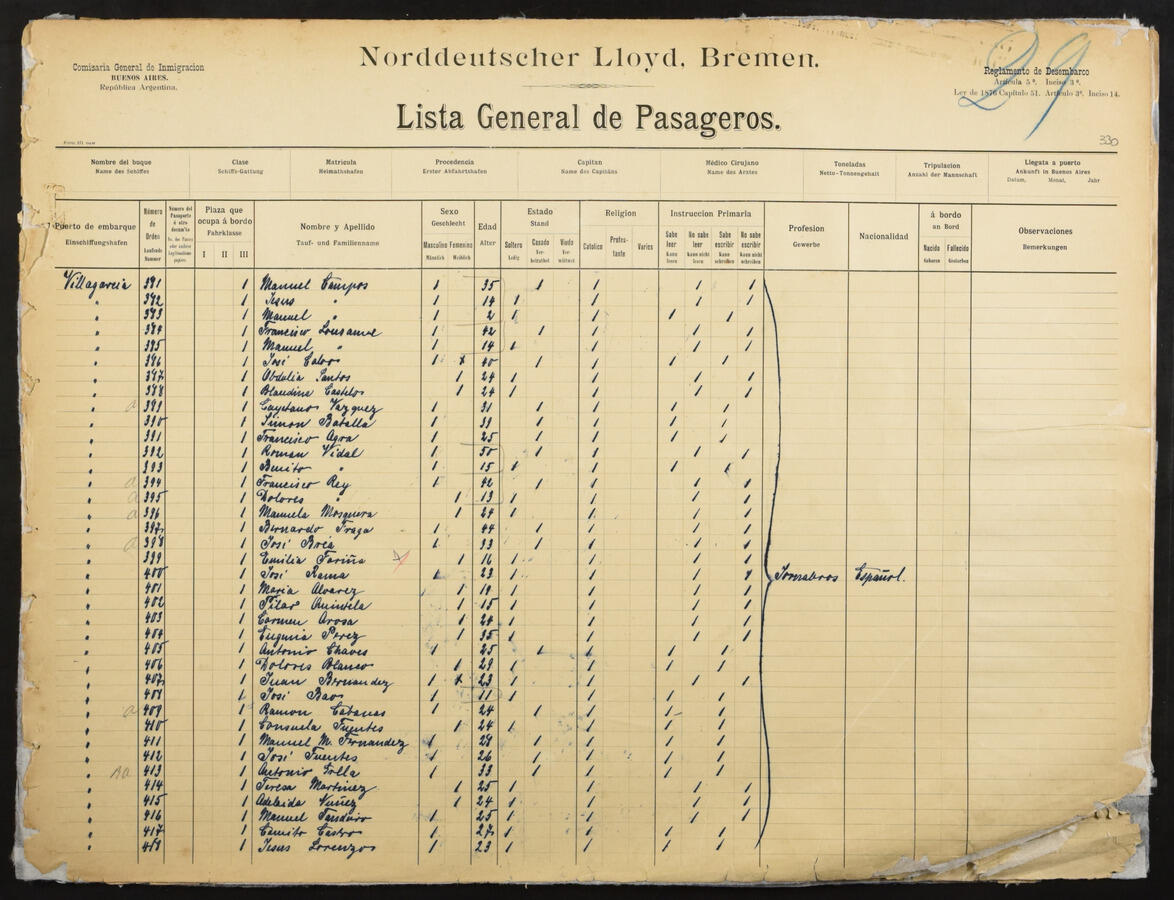 Norddeutscher Lloyd, Bremen.
Comisaria General de Inmigracion
BUENOS AIRES.
República Argentina.
29
Reglamento de Desembarco
Artícula 5º. Inciso 3º.
Ley de 1876 Capítulo 51. Artículo 3º. Inciso 14.
Lista General de Pasageros.
330
Nombre del buque Clase Matricula Procedencia Capitan Médico Cirujano Toneladas Tripulacion Llegata a puerto
Name des Schiffes Schiffs-Gattung Heimathshafen Erster Abfahrtshafen Name des Capitäns Name des Arztes Netto-Tonnengehalt Anzahl der Mannschaft Ankunft in Buenos Aires
Datum, Monat, Jahr
Puerto de embarque Número de Orden Plaza que ocupa á bordo Nombre y Apellido Sexo Edad Estado Religion Instruccion Primaria Profesion Nacionalidad á bordo Observaciones
Einschiffungshafen Laufende Nummer Fahrklasse Tauf- und Familienname Geschlecht Alter Stand Gewerbe an Bord Bemerkungen
I II III Masculino Femenino Soltero Casado Viudo Catolico Protestante Varies Sabe leer No sabe leer Sabe escribir No sabe escribir Nacido Fallecido
Männlich Weiblich Ledig Verheirathet Verwittwet kann lesen kann nicht lesen kann schreiben kann nicht schreiben Geboren Gestorben
Villagarcia 381 1 Manuel Campos 1 35 1 1 1 1
" 382 1 Jesus " 1 14 1 1 1 1
" 383 1 Manuel " 1 2 1 1 1 1
" 384 1 Francisco 1 42 1 1 1 1
" 385 1 Manuel " 1 14 1 1 1 1
" 386 1 José 1 40 1 1 1 1
" 387 1 Obdulia Santos 1 24 1 1 1 1
" 388 1 Blandina Castelos 1 24 1 1 1 1
" a 389 1 Cayetano Vazquez 1 31 1 1 1 1
" 390 1 Simon Batalla 1 39 1 1 1 1
" 391 1 Francisco Agra 1 25 1 1 1 1
" 392 1 Roman Vidal 1 50 1 1 1 1
" 393 1 Benito " 1 15 1 1 1 1
" a 394 1 Francisco Rey 1 42 1 1 1 1
" a 395 1 Dolores " 1 13 1 1 1 1
" a 396 1 Manuela Mosquera 1 24 1 1 1 1
" 397 1 Bernardo Fraga 1 44 1 1 1 1
" a 398 1 José Brea 1 33 1 1 1 1
" 399 1 Emilia Fariña 1 16 1 1 1 1
" 400 1 José Rama 1 23 1 1 1 1 Jornaleros Español.
" 401 1 Maria Alvarez 1 19 1 1 1 1
" 402 1 Pilar Quintela 1 15 1 1 1 1
" 403 1 Carmen Arosa 1 24 1 1 1 1
" 404 1 Eugenia Perez 1 35 1 1 1 1
" 405 1 Antonio Chaves 1 25 1 1 1 1
" 406 1 Dolores Blanco 1 29 1 1 1 1
" 407 1 Juan Bernandez 1 23 1 1 1 1
" 408 1 José Baos 1 11 1 1 1 1
" a 409 1 Ramon Cabanas 1 24 1 1 1 1
" 410 1 Consuela Fuentes 1 24 1 1 1 1
" 411 1 Manuel M. Fernandez 1 28 1 1 1 1
" 412 1 José Fuentes 1 26 1 1 1 1
" 413 1 Antonio 1 33 1 1 1 1
" 414 1 Teresa Martinez 1 25 1 1 1 1
" 415 1 Adelaida Nuñez 1 24 1 1 1 1
" 416 1 Manuel 1 25 1 1 1 1
" 417 1 Camilo Castro 1 27 1 1 1 1
" 418 1 Jesus Lorenzos 1 23 1 1 1 1